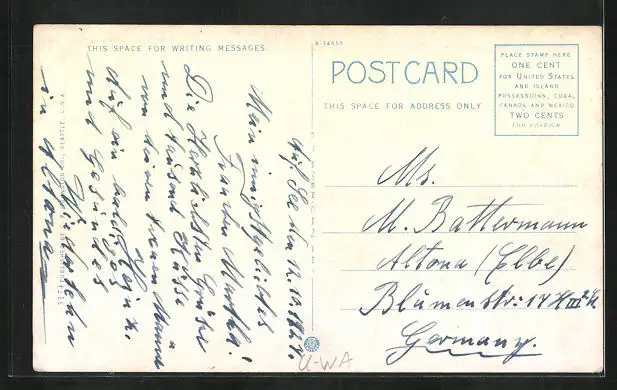 THIS SPACE FOR WRITING MESSAGES
A 74455
POST CARD
THIS SPACE FOR ADDRESS ONLY
PLACE STAMP HERE
ONE CENT
FOR UNITED STATES
AND ISLAND
POSSESSIONS, CUBA,
CANADA AND MEXICO
TWO CENTS
FOR FOREIGN
Auf See den 12.
Mein innigstgeliebtes
Frauchen Martha!
Die Herzlichsten Grüße
und tausend Küsse
von deinen treuen Mann
Auf ein baldiges
und Gesundes
Wiedersehn
in Altona
Ms.
M. Battermann
Altona (Elbe)
Blumenstr: 17
Germany.
U-WA